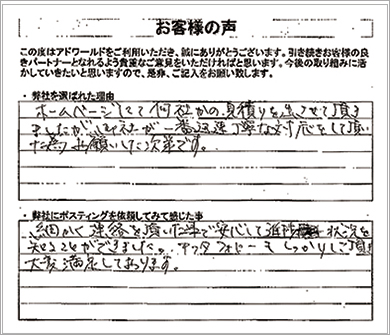 お客様の声
この度はアドワールドをご利用いただき、誠にありがとうございます。引き続きお客様の良
きパートナーとなれるよう貴重なご意見をいただければと思います。今後の取り組みに活
かしていきたいと思いますので、是非、ご記入をお願い致します。
・弊社を選ばれた理由
ホームページにて何社かの見積りを出させて頂き
ましたが、御社が一番迅速丁寧な対応をして頂い
た為お願いした次第です。
・弊社にポスティングを依頼してみて感じた事
細かく連絡を頂いた事で安心して進捗状況を
知ることができました。アフタフォローもしっかりして頂き
大変満足しております。